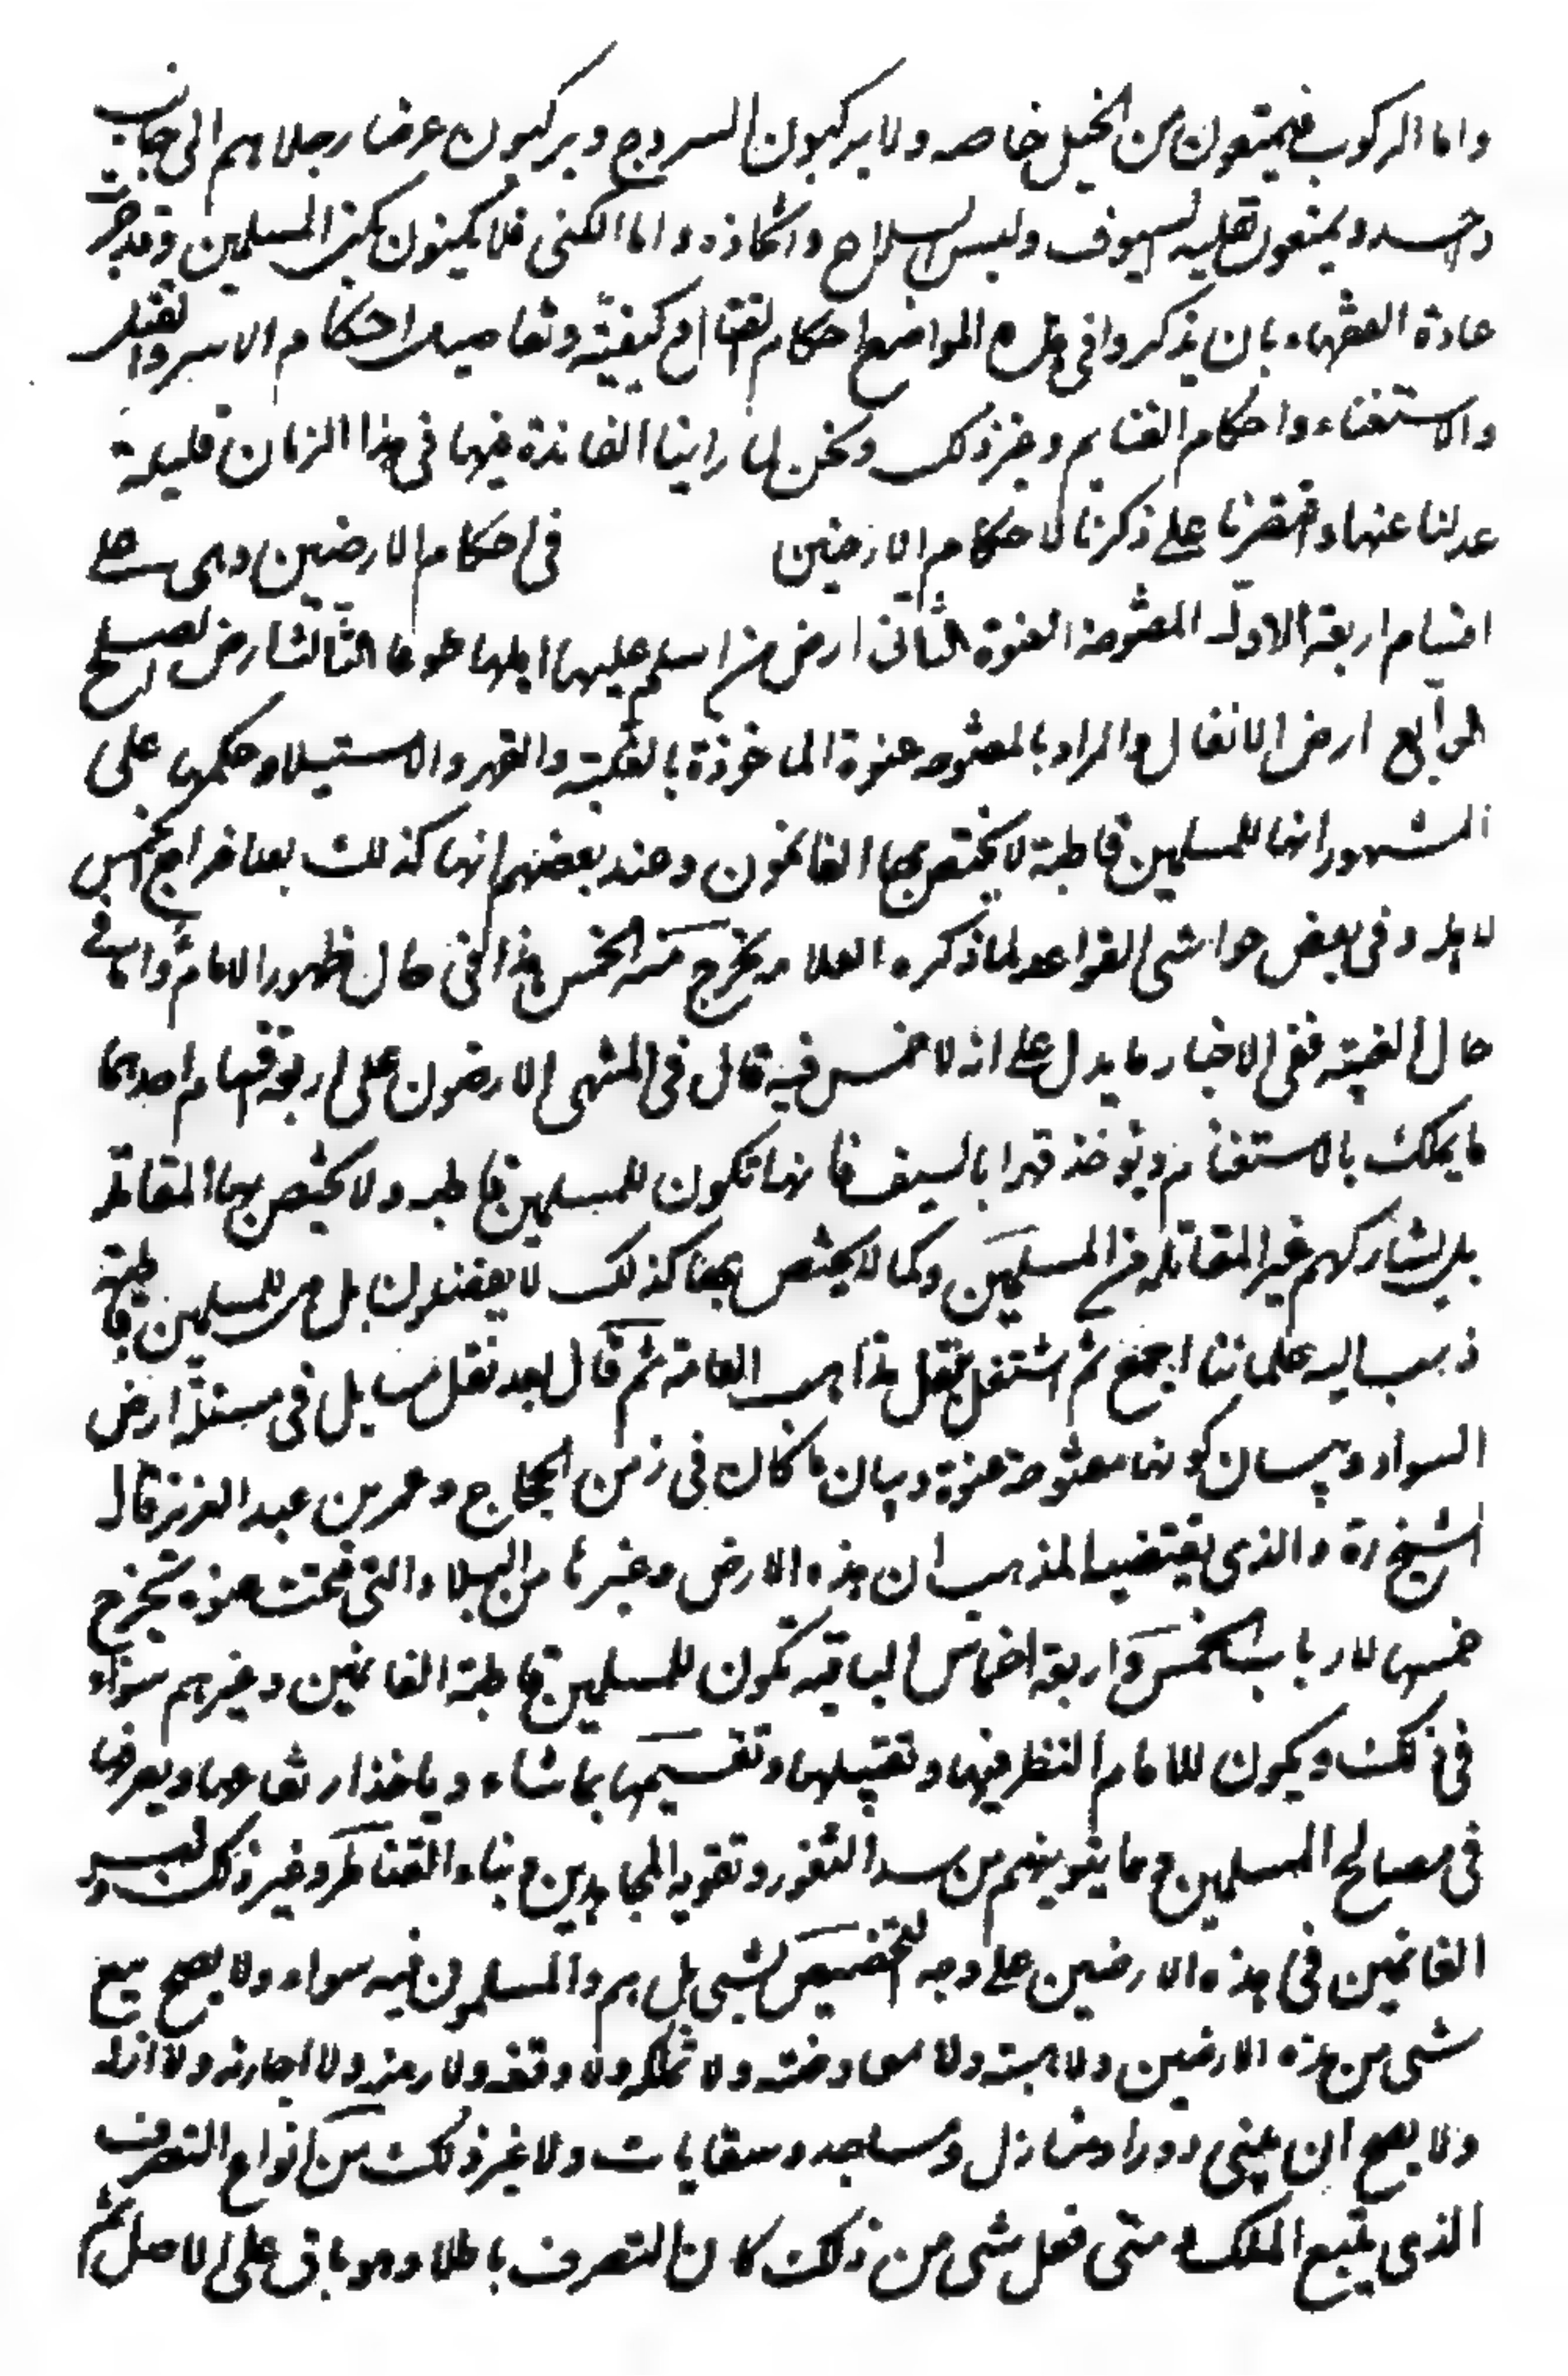 واما الركوب فيمتعون من الخيل خاصه ولا يركبون السروج ويركبون عرضا رجلاهم الى جانب
واحد ويمنعون تقليد السيوف ولبس السلاح واتخاذه واما الكنى فلا يكنون بكنى المسلمين وقد جرت
عادة الفقهاء بان يذكروا في هذه المواضع احكام القتال وكيفيته وتفاصيل احكام الاسر والقتل
والاستغناء واحكام الغنايم وغير ذلك ونحن لما راينا الفائدة فيها في هذا الزمان قليلة
عدلنا عنها واقتصرنا على ذكرنا لاحكام الارضين في احكام الارضين وهى على
اقسام اربعة الاول المفتوحة العنوة الثانى ارض من اسلم عليها اهلها طوعا الثالث ارض الصلح
الرابع ارض الانفال والمراد بالمفتوحه عنوة الماخوذة بالغلبة والقهر والاستيلاء وحكمها على
المشهور انها للمسلمين قاطبة لا يختص بها الغانمون وعند بعضهم انها كذلك بعد اخراج الخمس
لاهله وفى بعض حواشى القواعد لما ذكره العلامه يخرج منه الخمس هذا في حال ظهور الامام واما في
حال الغيبة ففى الاخبار ما يدل على انه لا خمس فيه قال في المنتهى الارضون على اربعة اقسام احدها
ما يملك بالاستغنام ويؤخذ قهرا بالسيف فانها تكون للمسلمين قاطبه ولا يختص بها المقاتله
بل يشاركهم غير المقاتله من المسلمين وكما لا يختص بها كذلك لا يفضلون بل هى للمسلمين قاطبة
ذهب اليه علمائنا اجمع ثم اشتغل بنقل مذاهب العامة ثم قال بعد نقل مسايل في مسئلة ارض
السواد وبيان كونها مفتوحة عنوة وبيان ما كان في زمن الحجاج وعمر بن عبد العزيز قال
الشيخ ره والذى يقتضيه المذهب ان هذه الارض وغيرها من البلاد التى فتحت عنوه تخرج
خمسها لارباب الخمس واربعة اخماس الباقيه تكون للمسلمين قاطبة الغانمين وغيرهم سواء
في ذلك ويكون للامام النظر فيها وتقبيلها وتقسيمها بما شاء وياخذ ارتفاعها ويصرفها
في مصالح المسلمين وما ينوبهم من سد الثغور وتقويه المجاهدين وبناء القناطر وغير ذلك وليس
الغانمين في هذه الارضين على وجه التخصيص شيى بل هم والمسلمون فيه سواء ولا يصح بيع
شيى من هذه الارضين ولا هبته ولا معاوضته ولا تملكه ولا وقفه ولا رهنه ولا اجارته ولا ارثه
ولا يصح ان يبنى دورا ومنازل ومساجد وسقايات ولا غير ذلك من انواع التصرف
الذى يتبع الملك ومتى فعل شيى من ذلك كان التصرف باطلا وهو باق على الاصل ثم